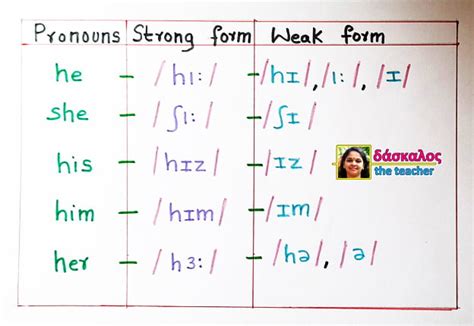 Pronouns Strong form Weak form
he – /hɪ:/ – /hɪ/, /ɪ:/, /ɪ/
she – /ʃɪ:/ – /ʃɪ/
his – /hɪz/ – /ɪz/
δάσκαλος
the teacher
him – /hɪm/ – /ɪm/
her – /hɜ:/ – /hə/, /ə/